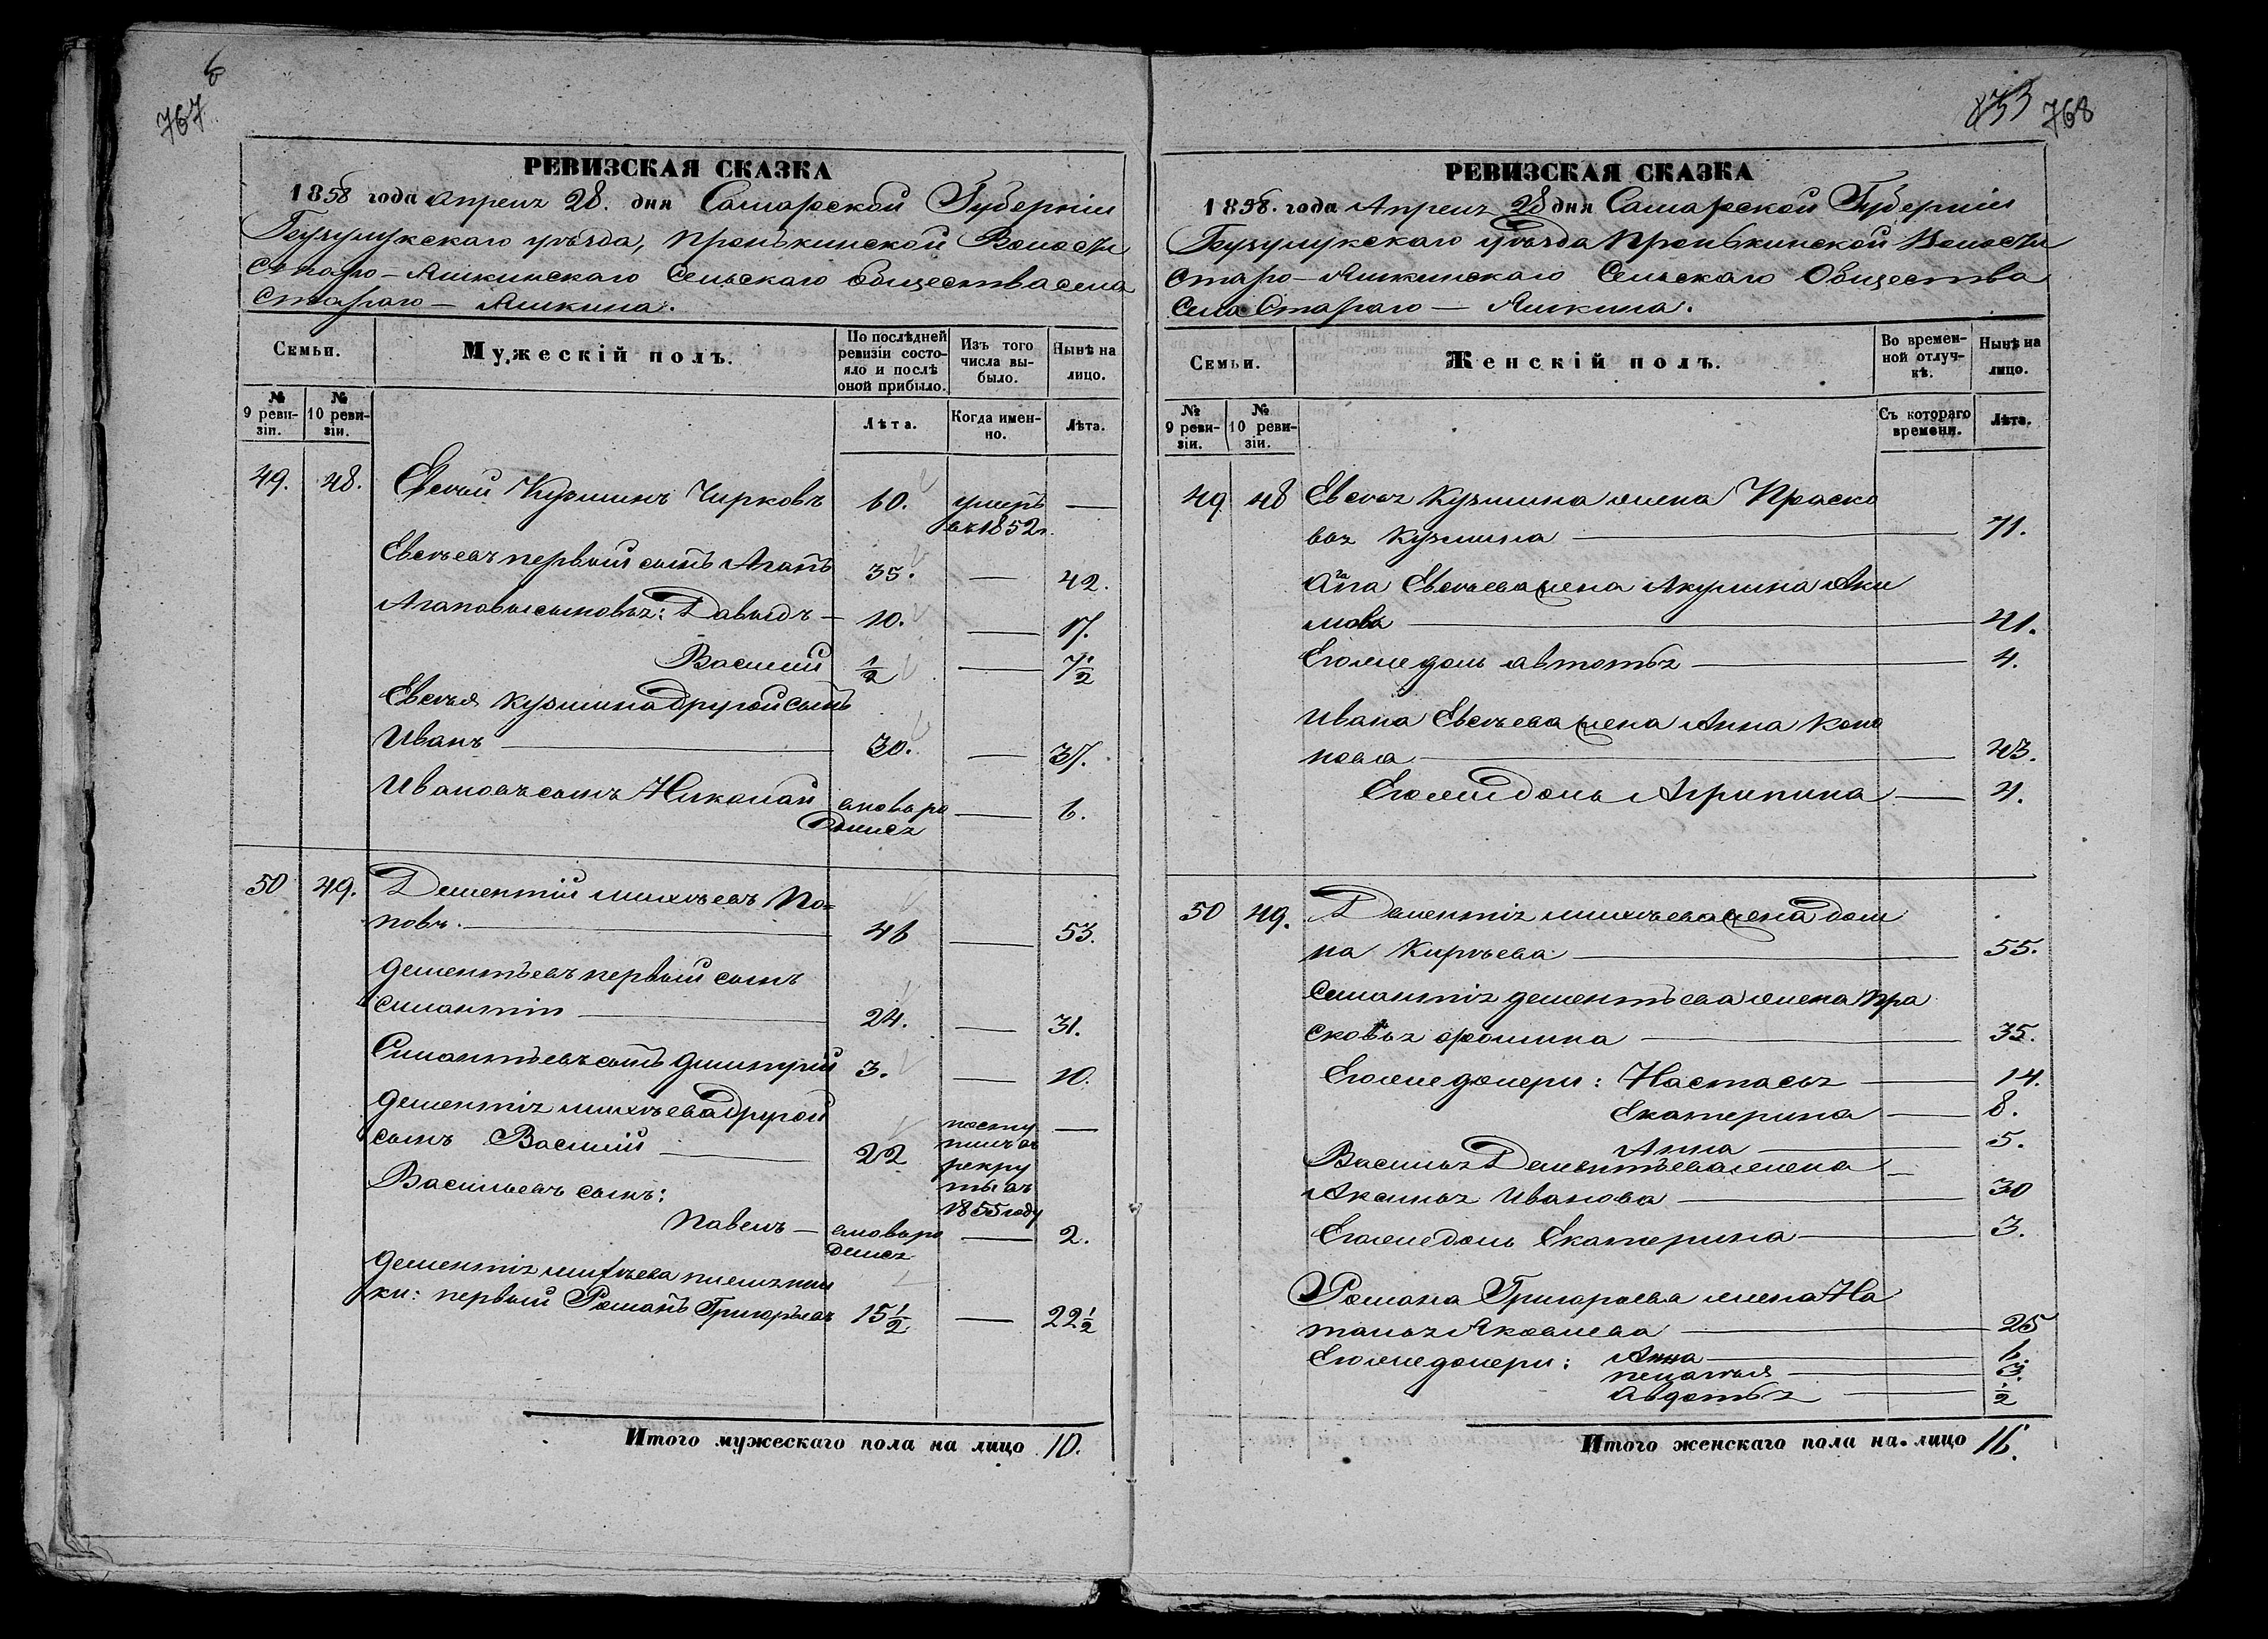 767
6
РЕВИЗСКАЯ СКАЗКА
1858 года Апреля 28. дня Самарской Губерніи
Бузулукскаго уѣзда, Пронькинской Волости
Старо-Яшкинскаго Сельскаго Общества села
Стараго-Яшкина.
Семьи.
Мужескій полъ.
По послѣдней ревизіи состояло и послѣ оной прибыло.
Изъ того числа выбыло.
Нынѣ на лицо.
№ 9 ревизіи.
№ 10 ревизіи.
Лѣта.
Когда именно.
Лѣта.
49. 48. Евсѣй Кузминъ Чирковъ 60. умеръ въ 1852 г. —
Евсѣевъ первый сынъ Агапъ 35. — 42.
Агаповы сыновья: Давыдъ — 10. — 17.
Василий ½ — 7½
Евсѣя Кузмина другой сынъ
Иванъ — 30. — 37.
Ивановъ сынъ Николай вновь родился — 6.
50 49. Дементій Михѣевъ По=
повъ. — 46 — 53.
Дементьевъ первый сынъ
Силантій — 24. — 31.
Силантьевъ сынъ Дмитрій 3. — 10.
Дементія Михѣева другой
сынъ Василій — 22 поступилъ въ рекруты въ 1855 году —
Васильевъ сынъ:
Павелъ — вновь родился — 2.
Дементія Михѣева племянни
ки: первый Романъ Григорьевъ 15½ — 22½
Итого мужескаго пола на лицо 10.
833 768
РЕВИЗСКАЯ СКАЗКА
1858. года Апреля 28 дня Самарской Губерніи
Бузулукскаго уѣзда Пронькинской Волости
Старо-Яшкинскаго Сельскаго Общества
Села Стараго — Яшкина.
Семьи.
Женскій полъ.
Во временной отлучкѣ.
Нынѣ на лицо.
№ 9 ревизіи.
№ 10 ревизіи.
Съ котораго времени.
Лѣта.
49 48 Евсѣя Кузмина жена Праско
вья Кузмина — 71.
Агапа Евсѣева жена Акулина Аки
мова — 41.
Его же дочь Автотья — 4.
Ивана Евсѣева жена Анна Коно
нова — 43.
Его же дочь Агрипина — 4.
50 49. Дементія Михѣева жена Дом
на Кирѣева — 55.
Силантія Дементьева жена Пра
сковья Фомина — 35.
Его же дочери: Настасья — 14.
Екатерина — 8.
Анна — 5.
Василья Дементьева жена —
Аксинья Иванова — 30
Его же дочь Екатерина — 3.
Романа Григорьева жена На
талья Яковлева — 25
Его же дочери: Анна — 6
Пелагѣя — 3.
Авдотья — ½
Итого женскаго пола на лицо 16.